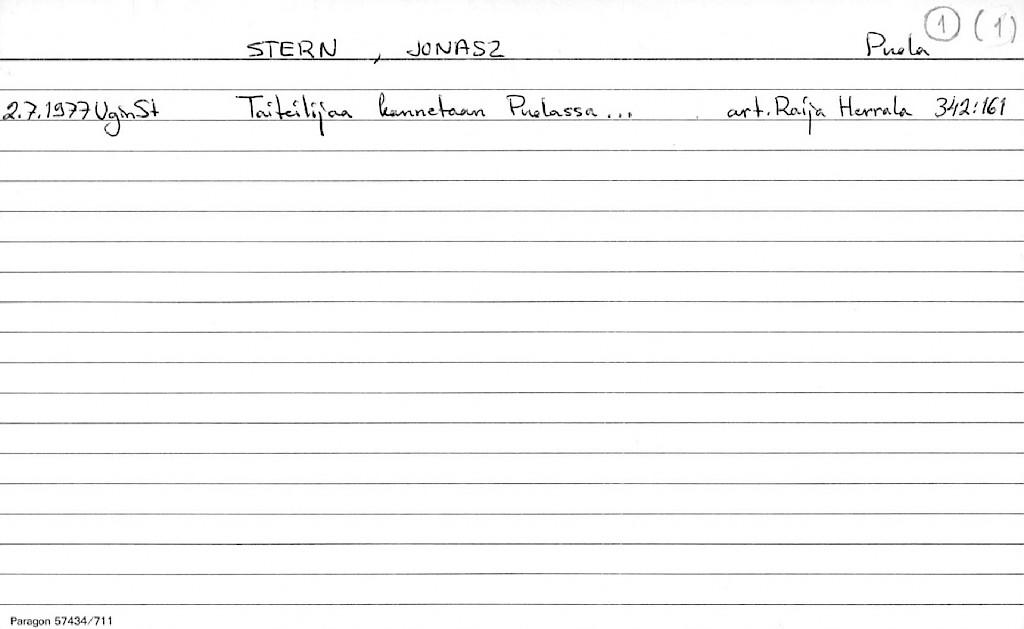 STERN, JONASZ Puola 1 (1)
2.7.1977 UginSt Taiteilijaa kannetaan Puolassa... art. Raija Herrala 342:161
Paragon 57434/711